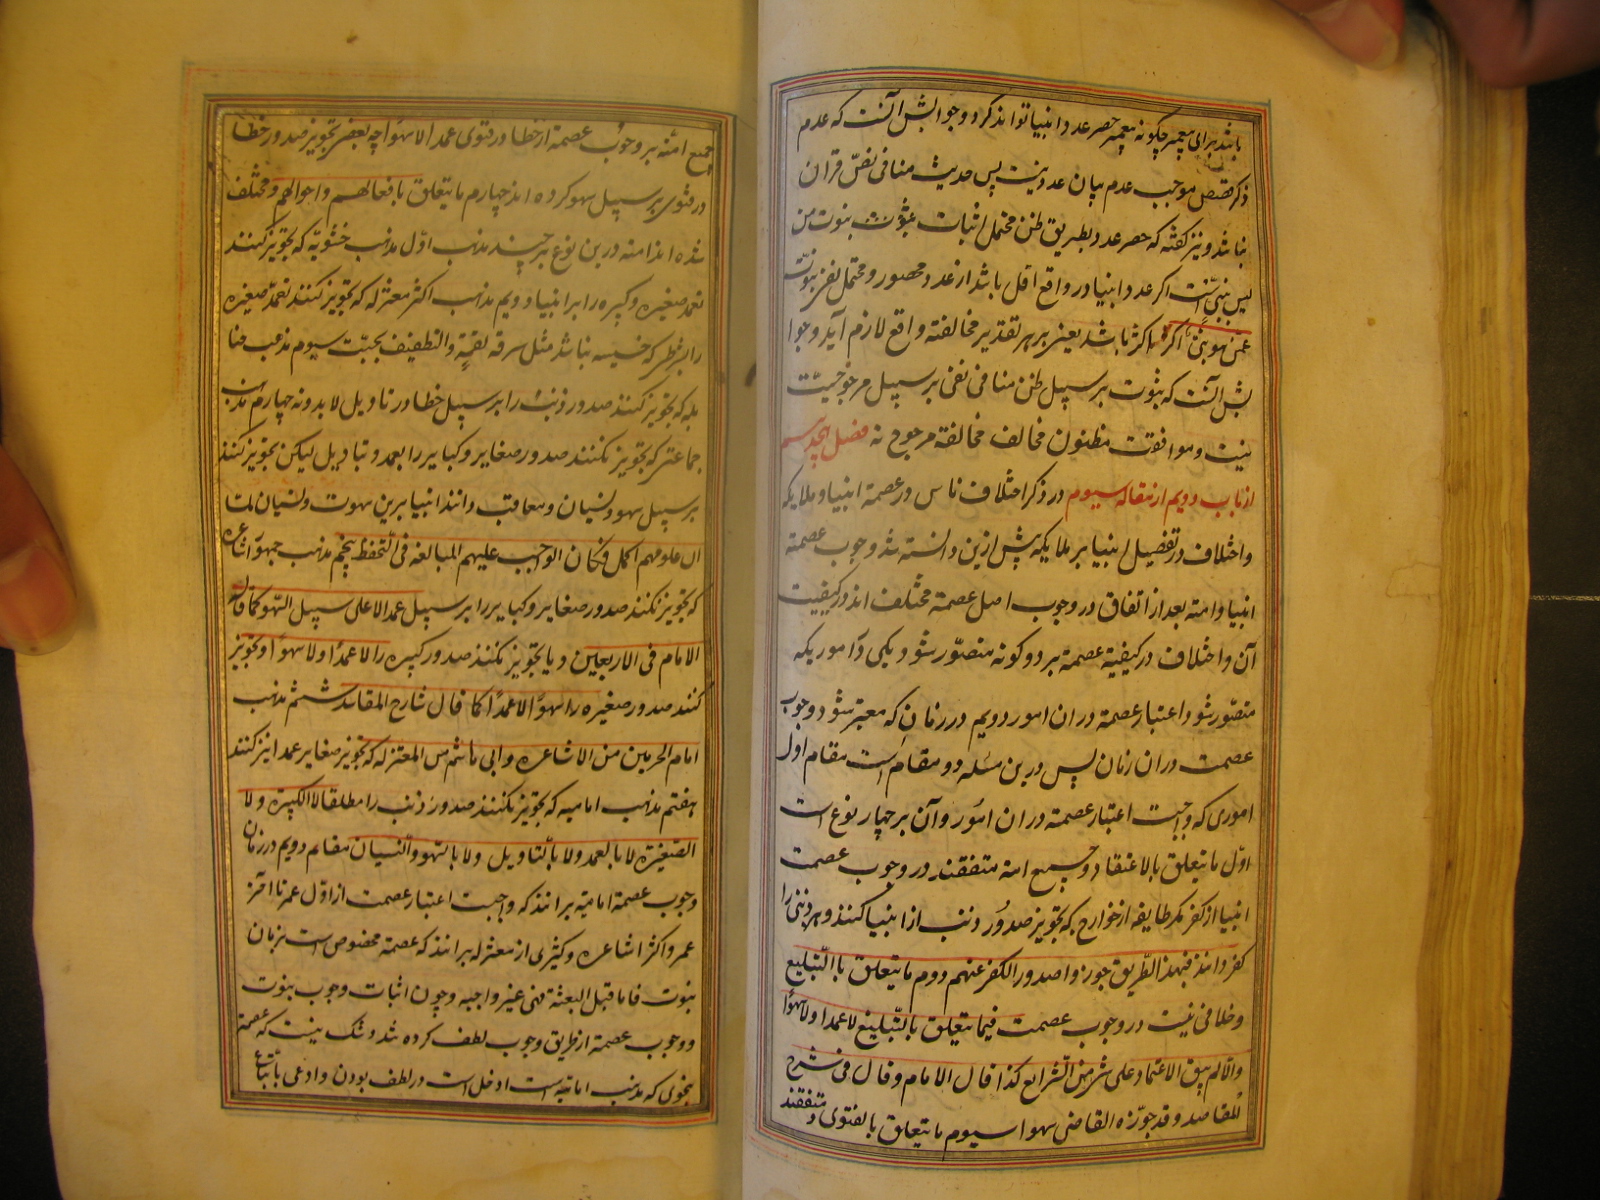 باشد برای پیغمبر چگونه پیغمبر حصر عدد انبیا تواند کرد و جوابش آنست که عدم
ذکر قصص موجب عدم بیان عدد نیست پس حدیث منافی نص قرآن
نباشد و نیز گفته که حصر عدد بطریق ظن محتمل اثبات نبوت من
لیس بنبی است اگر عدد انبیا در واقع اقل باشد از عدد محصور و محتمل نفی نبوت
عمن هو نبی اگر اکثر باشد یعنی بر هر تقدیر مخالفته واقع لازم آید و جوا
بش آنست که ثبوت بر سبیل ظن منافی نفی بر سبیل مرجوحیت
نیست و موافقت مظنون مخالف مخالفة مرجوح نه فصل هیجدهم
از باب دویم از مقاله سیوم در ذکر اختلاف ناس در عصمة انبیا و ملایکه
و اختلاف در تفضیل انبیا بر ملایکه پیش ازین دانسته شد وجوب عصمة
انبیا و امة بعد از اتفاق در وجوب اصل عصمة مختلف اند در کیفیت
آن و اختلاف در کیفیة عصمة بر دو کونه متصور شود یکی در اموریکه
متصور شود اعتبار عصمة در ان امور دویم در زمان که معتبر شود وجوب
عصمت در ان زمان پس درین مسئله دو مقام است مقام اول
اموری که واجبست اعتبار عصمة در ان امور و آن بر چهار نوع است
اول ما یتعلق بالاعتقاد و جمیع امة متفقند در وجوب عصمت
انبیا از کفر مکر طایفه از خوارج که تجویز صدور ذنب از انبیا کنند و هر ذنبی را
کفر دانند فبهذا الطریق جوزوا صدور الکفر عنهم دوم ما یتعلق بالتبلیغ
و خلافی نیست در وجوب عصمت فیما یتعلق بالتبلیغ لا عمدا ولا سهوا
والا لم یبق الاعتماد علی شیء من الشرایع کذا قال الامام و قال فی شرح
المقاصد و قد جوزه القاضی سهوا سیوم ما یتعلق بالفتوی و متفقند
جمیع امة بر وجوب عصمة از خطا در فتوی عمدا لا سهوا چه بعضی تجویز صدور خطا
در فتوی بر سبیل سهو کرده اند چهارم ما یتعلق بافعالهم و احوالهم و مختلف
شده اند امة درین نوع بر چند مذهب اول مذهب حشویه که تجویز کنند
تعمد صغیره و کبیره را بر انبیا دویم مذهب اکثر معتزله که تجویز کنند تعمد صغیره
را بشرطی که خسیسه نباشد مثل سرقه لقمة والتطفیف بحبت سیوم مذهب حنا
بله که تجویز کنند صدور ذنب را بر سبیل خطا در تاویل لا بدونه چهارم مذهب
جماعتی که تجویز نکنند صدور صغایر و کبایر را بعمد و تاویل لیکن تجویز کنند
بر سبیل سهو و نسیان و معاقب دانند انبیا برین سهو و نسیان لما
ان علومهم اکمل فکان الواجب علیهم المبالغه فی التحفظ پنجم مذهب جمهور اشاعره
که تجویز نکنند صدور صغایر و کبایر را بر سبیل عمد الا علی سبیل السهو کما قال
الامام فی الاربعین و یا تجویز نکنند صدور کبیره را لا عمدا ولا سهوا و تجویز
کنند صدور صغیره را سهوا لا عمدا کما قال شارح المقاصد ششم مذهب
امام الحرمین من الاشاعره و ابی هاشم من المعتزله که تجویز صغایر عمدا نیز کنند
هفتم مذهب امامیه که تجویز نکنند صدور ذنب را مطلقا لا الکبیرة ولا
الصغیرة لا بالعمد ولا بالتاویل ولا بالسهو والنسیان مقام دویم در زمان
وجوب عصمة امامیه بر انند که واجبست اعتبار عصمت از اول عمر تا آخر
عمر و اکثر اشاعره و کثیری از معتزله بر انند که عصمة مخصوص است بزمان
نبوت فاما قبل البعثة فهی غیر واجبه و چون اثبات وجوب نبوت
و وجوب عصمة از طریق وجوب لطف کرده شد و شک نیست که عصمة
بنحوی که مذهب امامیه است ادخل است در لطف بودن و ادعی باتباع